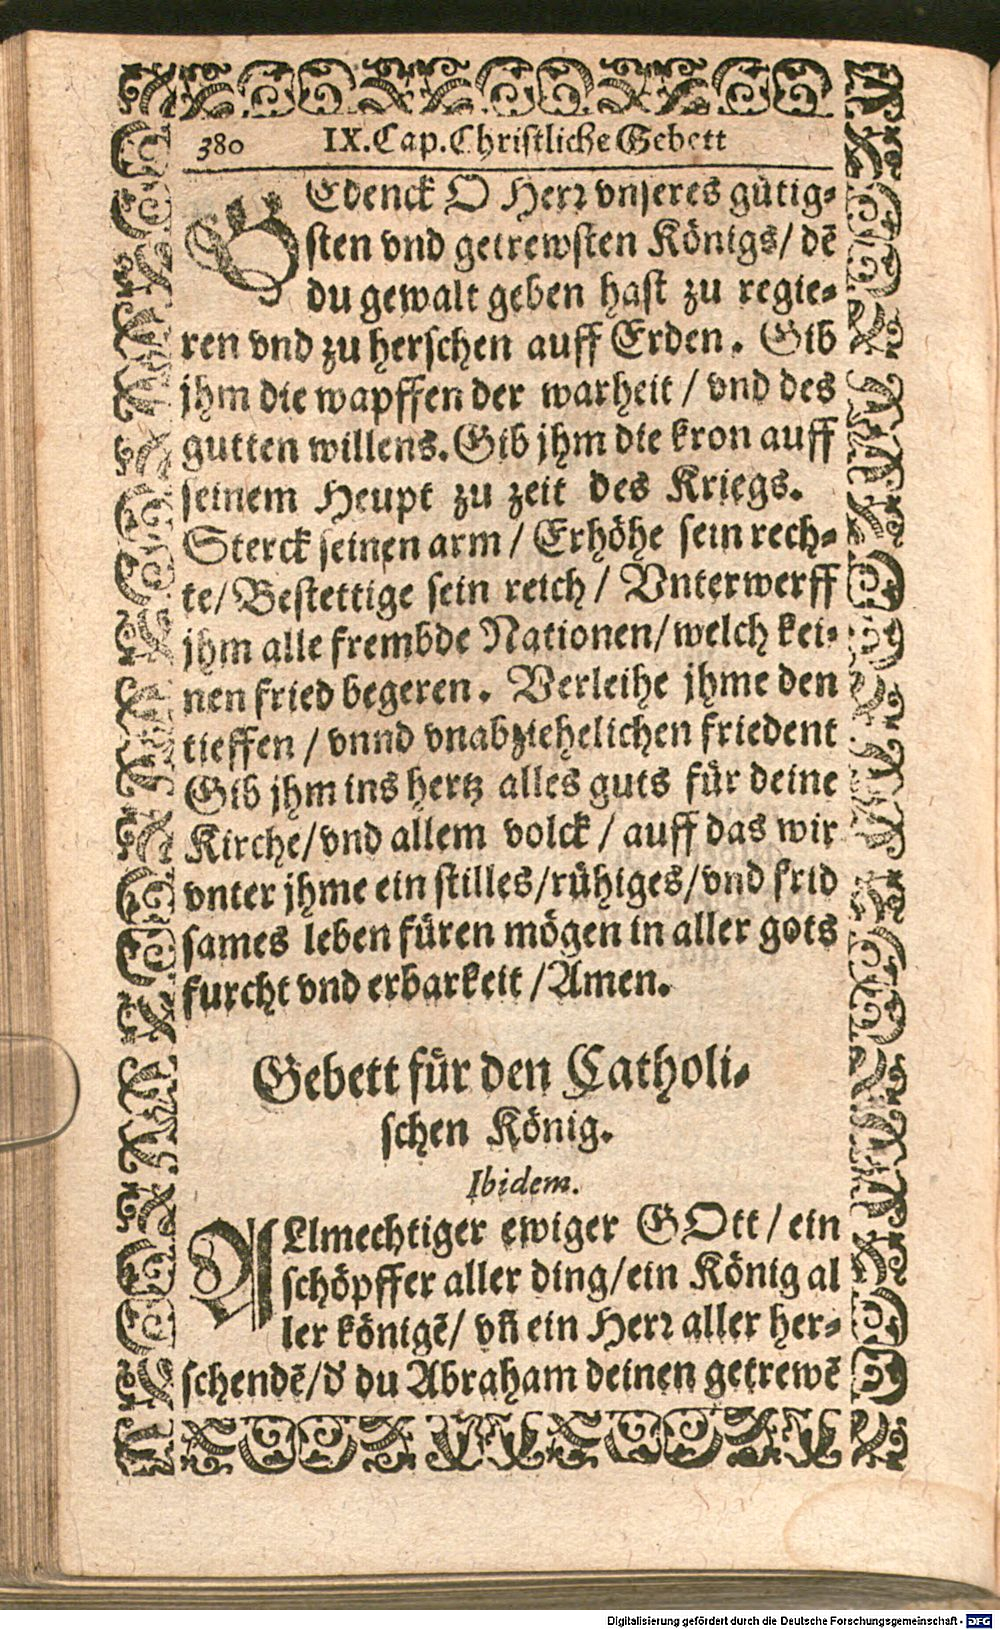 380 IX. Cap. Christliche Gebett
GEdenck O Herr vnseres gütig-
sten vnd getrewsten Königs/ dē
du gewalt geben hast zu regie-
ren vnd zu herschen auff Erden. Gib
jhm die wapffen der warheit / vnd des
gutten willens. Gib jhm die kron auff
seinem Heupt zu zeit des Kriegs.
Sterck seinen arm / Erhöhe sein rech-
te/ Bestettige sein reich / Vnterwerff
jhm alle frembde Nationen/ welch kei-
nen fried begeren. Verleihe jhme den
tieffen / vnnd vnabziehelichen friedent
Gib jhm ins hertz alles guts für deine
Kirche/ vnd allem volck / auff das wir
vnter jhme ein stilles/ rühiges/ vnd frid
sames leben füren mögen in aller gots
furcht vnd erbarkeit / Amen.
Gebett für den Catholi-
schen König.
Ibidem.
ALlmechtiger ewiger GOtt / ein
schöpffer aller ding/ ein König al
ler königē/ vñ ein Herr aller her-
schendē/ d' du Abraham deinen getrewē
Digitalisierung gefördert durch die Deutsche Forschungsgemeinschaft - DFG